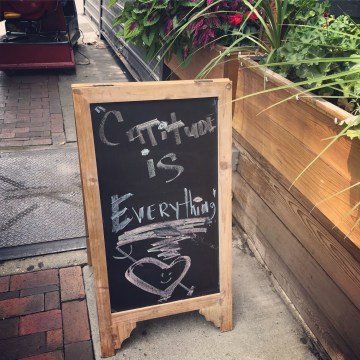 "Cattitude
is
Everything"